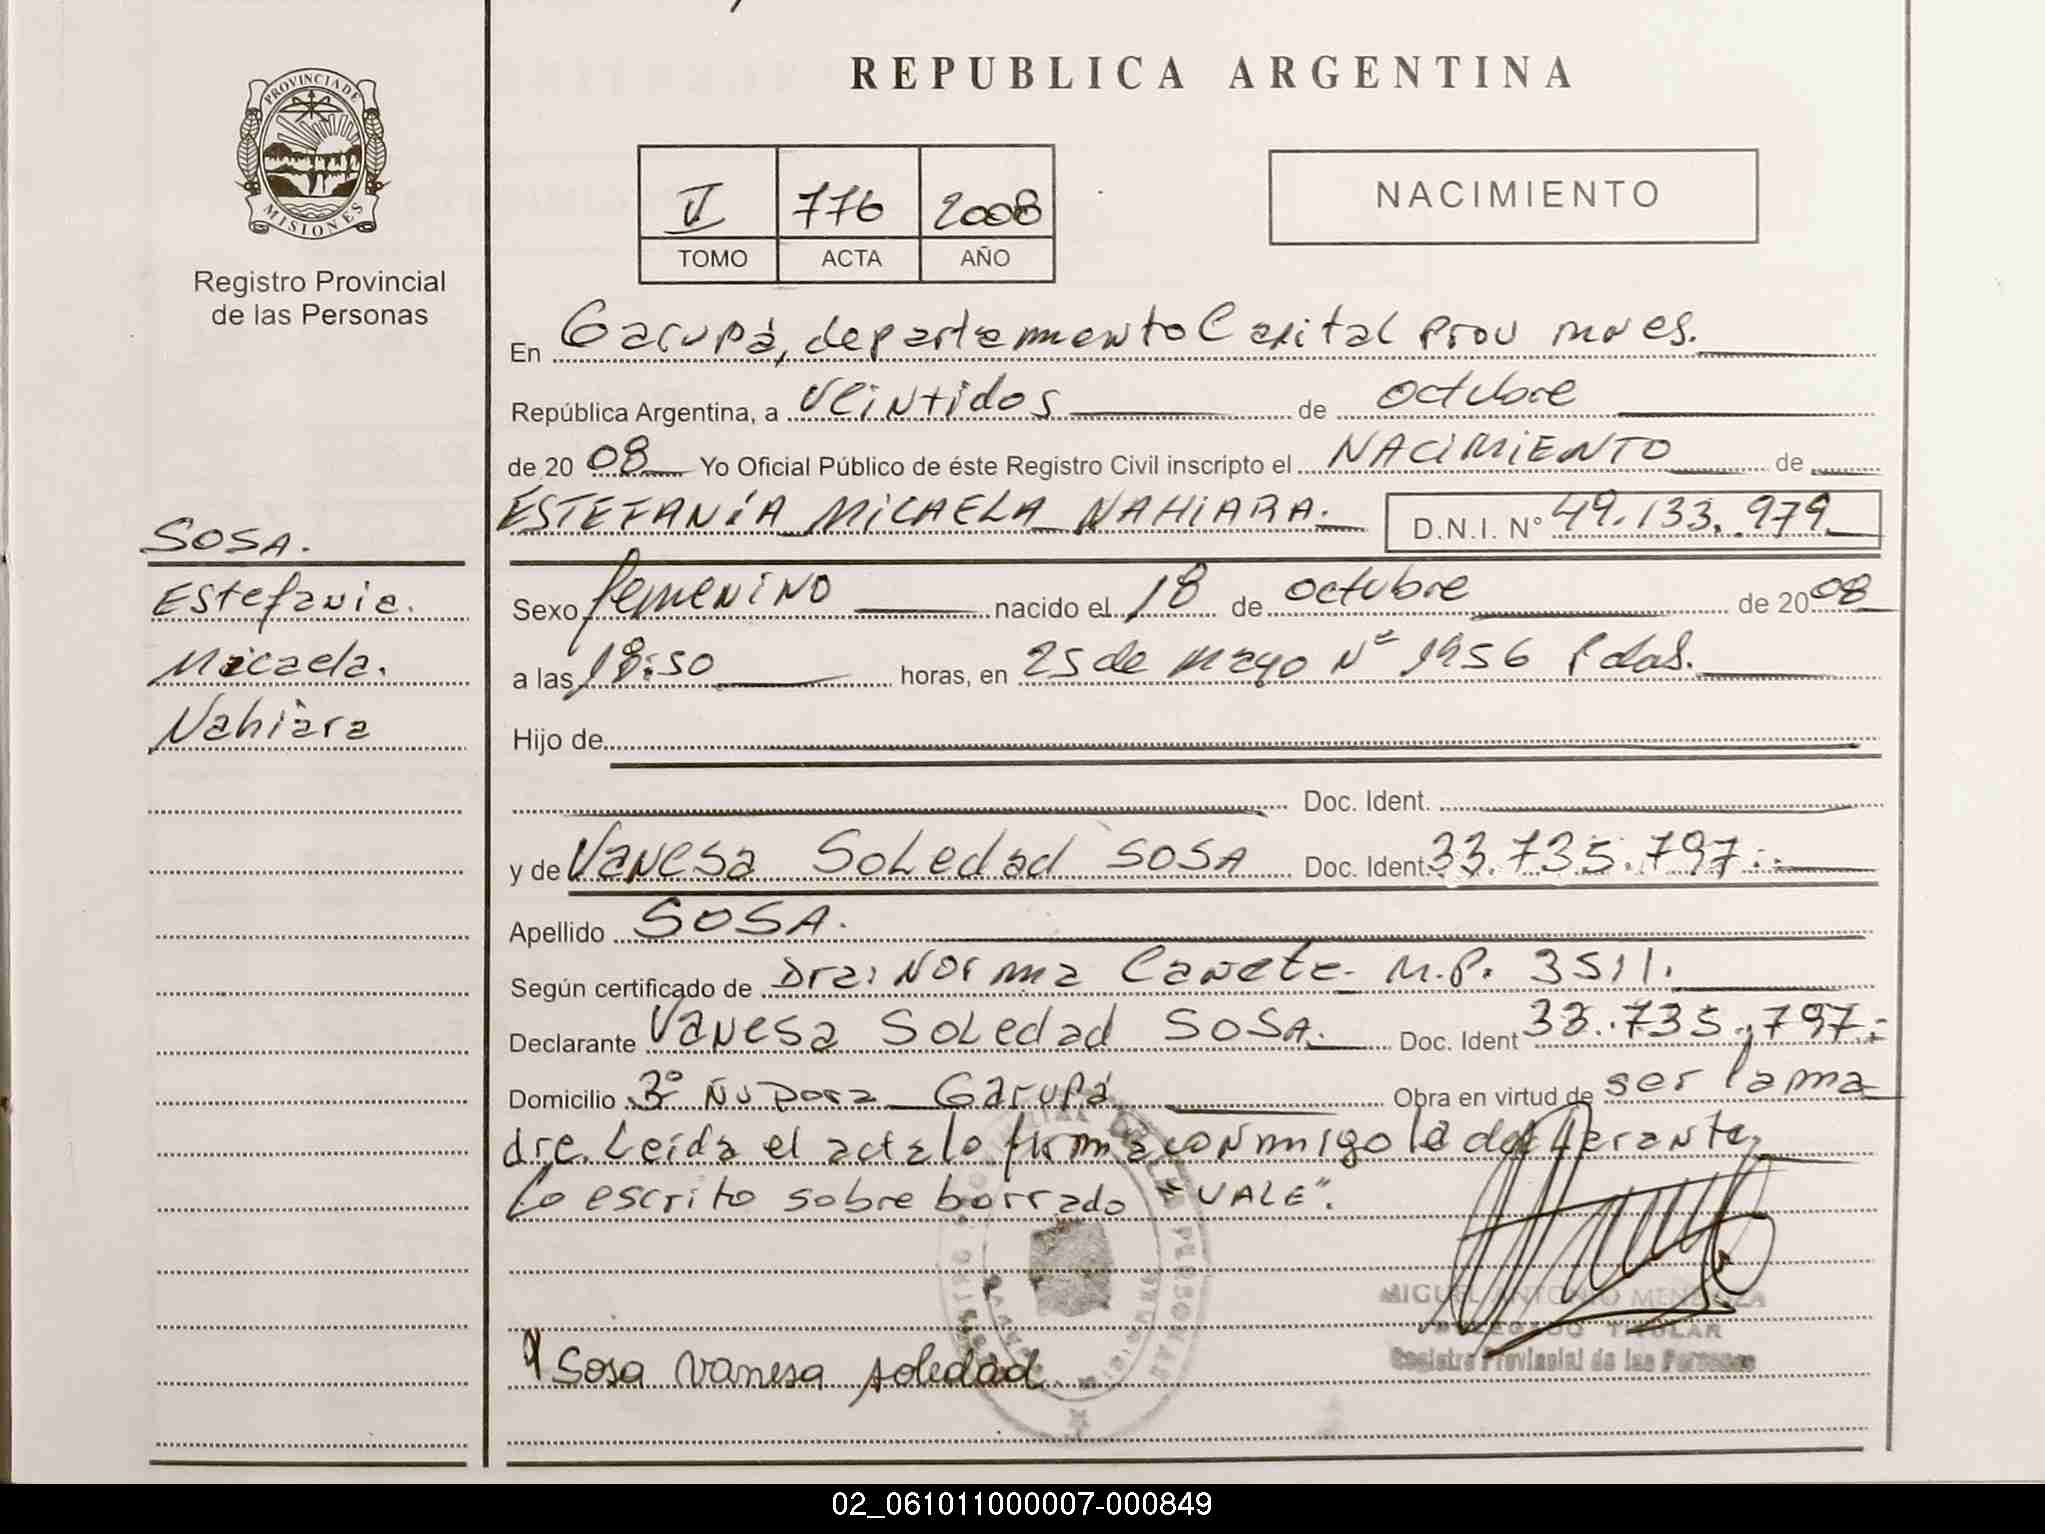 REPUBLICA ARGENTINA
PROVINCIA DE
MISIONES
Registro Provincial
de las Personas
V 776 2008
TOMO ACTA AÑO
NACIMIENTO
En Garupá, departamento Capital Prov mnes.
República Argentina, a veintidos de octubre
de 20 08 Yo Oficial Público de éste Registro Civil inscripto el NACIMIENTO de
ESTEFANÍA MICAELA NAHIARA. D.N.I. N° 49.133.979
SOSA.
Estefania.
Micaela.
Nahiara
Sexo femenino nacido el 18 de octubre de 20 08
a las 18:50 horas, en 25 de mayo Nº 1956 Pdas.
Hijo de
Doc. Ident.
y de Vanesa Soledad SOSA Doc. Ident. 33.735.797.-
Apellido SOSA.
Según certificado de Dra: Norma Canete. M.P. 3511.
Declarante Vanesa Soledad SOSA. Doc. Ident 33.735.797.-
Domicilio 3º Garupá Obra en virtud de ser la ma
dre. Leída el acta lo firma conmigo la declarante,
Lo escrito sobre borrado "VALE".
MIGUEL ANTONIO MENDOZA
DELEGADO TITULAR
Registro Provincial de las Personas
Sosa Vanesa soledad
02_061011000007-000849